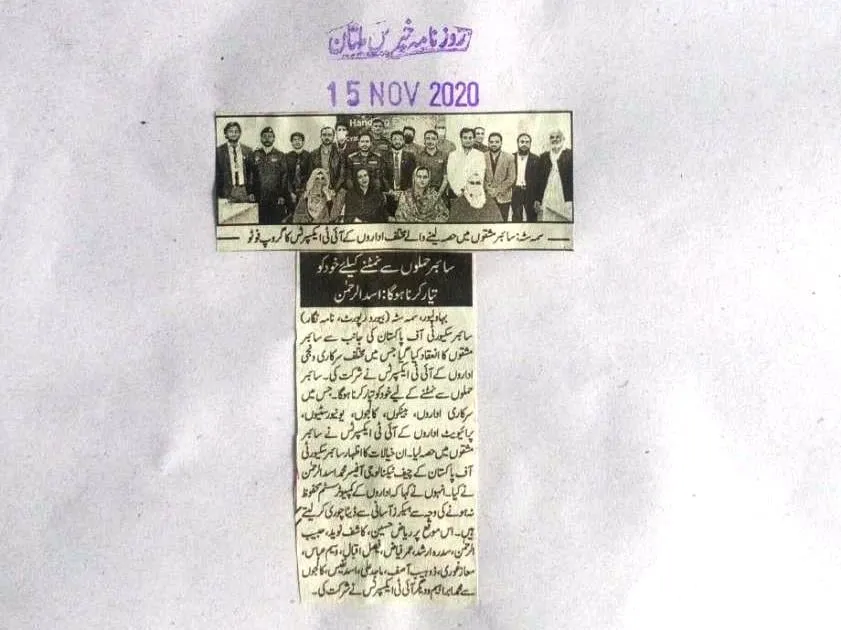 روزنامہ خبریں ملتان
15 NOV 2020
سمہ سٹہ: سائبر مشقوں میں حصہ لینے والے مختلف اداروں کے آئی ٹی ایکسپرٹس کا گروپ فوٹو
سائبر حملوں سے نمٹنے کیلئے خود کو
تیار کرنا ہوگا: اسد الرحمٰن
بہاولپور، سمہ سٹہ (بیورو رپورٹ، نامہ نگار)
سائبر سکیورٹی آف پاکستان کی جانب سے سائبر
مشقوں کا انعقاد کیا گیا جس میں مختلف سرکاری و نجی
اداروں کے آئی ٹی ایکسپرٹس نے شرکت کی۔ سائبر
حملوں سے نمٹنے کے لیے خود کو تیار کرنا ہوگا۔ جس میں
سرکاری اداروں، بینکوں، کالجوں، یونیورسٹیوں،
پرائیویٹ اداروں کے آئی ٹی ایکسپرٹس نے سائبر
مشقوں میں حصہ لیا۔ ان خیالات کا اظہار سائبر سکیورٹی
آف پاکستان کے چیف ٹیکنالوجی آفیسر محمد اسد الرحمٰن
نے کیا۔ انہوں نے کہا کہ اداروں کے کمپیوٹر سسٹم محفوظ
نہ ہونے کی وجہ سے ہیکرز آسانی سے ڈیٹا چوری کر لیتے
ہیں۔ اس موقع پر ریاض حسین، کاشف نوید، حبیب
الرحمن، سدرہ ارشد، عمر فیاض، فیصل اقبال، وسیم عباس،
معاذ غوری، ذوہیب آصف، ماجد علی، اسد نفیس، کالجوں
سے محمد ابراہیم و دیگر آئی ٹی ایکسپرٹس نے شرکت کی۔